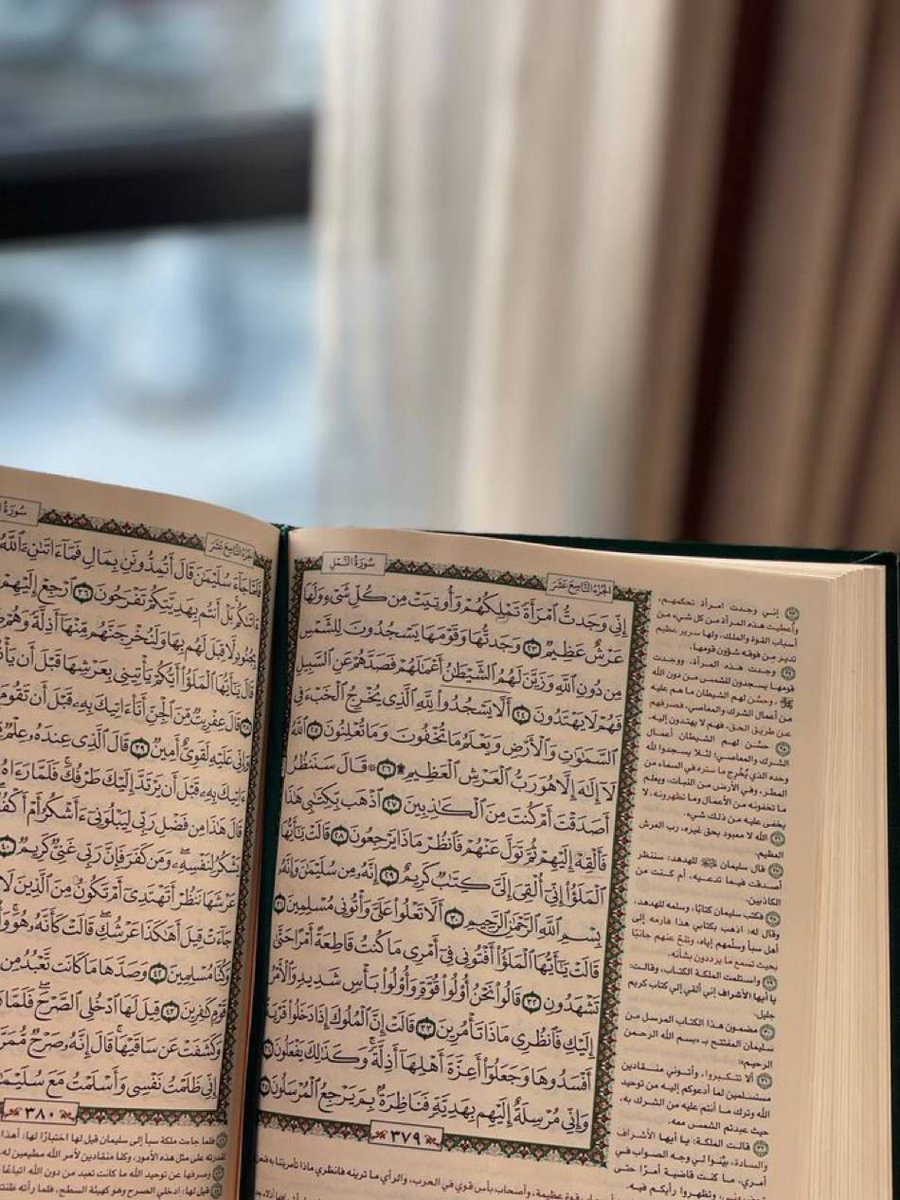 الجزء التاسع عشر
سورة النمل
إِنِّي وَجَدتُّ ٱمْرَأَةً تَمْلِكُهُمْ وَأُوتِيَتْ مِن كُلِّ شَيْءٍ وَلَهَا
عَرْشٌ عَظِيمٌ ٢٣ وَجَدتُّهَا وَقَوْمَهَا يَسْجُدُونَ لِلشَّمْسِ
مِن دُونِ ٱللَّهِ وَزَيَّنَ لَهُمُ ٱلشَّيْطَٰنُ أَعْمَٰلَهُمْ فَصَدَّهُمْ عَنِ ٱلسَّبِيلِ
فَهُمْ لَا يَهْتَدُونَ ٢٤ أَلَّا يَسْجُدُوا۟ لِلَّهِ ٱلَّذِي يُخْرِجُ ٱلْخَبْءَ فِي
ٱلسَّمَٰوَٰتِ وَٱلْأَرْضِ وَيَعْلَمُ مَا تُخْفُونَ وَمَا تُعْلِنُونَ ٢٥ ٱللَّهُ
لَآ إِلَٰهَ إِلَّا هُوَ رَبُّ ٱلْعَرْشِ ٱلْعَظِيمِ ۩ ٢٦ ۞ قَالَ سَنَنظُرُ
أَصَدَقْتَ أَمْ كُنتَ مِنَ ٱلْكَٰذِبِينَ ٢٧ ٱذْهَب بِّكِتَٰبِي هَٰذَا
فَأَلْقِهْ إِلَيْهِمْ ثُمَّ تَوَلَّ عَنْهُمْ فَٱنظُرْ مَاذَا يَرْجِعُونَ ٢٨ قَالَتْ يَٰٓأَيُّهَا
ٱلْمَلَؤُا۟ إِنِّيٓ أُلْقِيَ إِلَيَّ كِتَٰبٌ كَرِيمٌ ٢٩ إِنَّهُۥ مِن سُلَيْمَٰنَ وَإِنَّهُۥ
بِسْمِ ٱللَّهِ ٱلرَّحْمَٰنِ ٱلرَّحِيمِ ٣٠ أَلَّا تَعْلُوا۟ عَلَيَّ وَأْتُونِي مُسْلِمِينَ ٣١
قَالَتْ يَٰٓأَيُّهَا ٱلْمَلَؤُا۟ أَفْتُونِي فِيٓ أَمْرِي مَا كُنتُ قَاطِعَةً أَمْرًا حَتَّىٰ
تَشْهَدُونِ ٣٢ قَالُوا۟ نَحْنُ أُو۟لُوا۟ قُوَّةٍ وَأُو۟لُوا۟ بَأْسٍ شَدِيدٍ وَٱلْأَمْرُ
إِلَيْكِ فَٱنظُرِي مَاذَا تَأْمُرِينَ ٣٣ قَالَتْ إِنَّ ٱلْمُلُوكَ إِذَا دَخَلُوا۟ قَرْيَةً
أَفْسَدُوهَا وَجَعَلُوٓا۟ أَعِزَّةَ أَهْلِهَآ أَذِلَّةً وَكَذَٰلِكَ يَفْعَلُونَ ٣٤
وَإِنِّي مُرْسِلَةٌ إِلَيْهِم بِهَدِيَّةٍ فَنَاظِرَةٌۢ بِمَ يَرْجِعُ ٱلْمُرْسَلُونَ ٣٥
٣٧٩
٢٣ إني وجدت امرأة تحكمهم،
وأعطيت هذه المرأة من كل شيء من
أسباب القوة والملك، ولها سرير عظيم
تدير من فوقه شؤون قومها.
٢٤ وجدت هذه المرأة، ووجدت
قومها يسجدون للشمس من دون الله
، وحسّن لهم الشيطان ما هم عليه
من أعمال الشرك والمعاصي، فصرفهم
عن طريق الحق، فهم لا يهتدون إليه.
٢٥ حسّن لهم الشيطان أعمال
الشرك والمعاصي؛ لئلا يسجدوا لله
وحده الذي يُخرج ما ستره في السماء من
المطر، وفي الأرض من النبات، ويعلم
ما تخفونه من الأعمال وما تظهرونه، لا
يخفى عليه من ذلك شيء.
٢٦ الله لا معبود بحق غيره، رب العرش
العظيم.
٢٧ قال سليمان ﷺ للهدهد: سننظر
أصدقت فيما تدعيه، أم كنت من
الكاذبين.
٢٨ فكتب سليمان كتابًا، وسلمه للهدهد،
وقال له: اذهب بكتابي هذا فارمه إلى
أهل سبأ وسلّمهم إياه، وتنح عنهم جانبًا
بحيث تسمع ما يرددون بشأنه.
٢٩ واستلمت الملكة الكتاب، وقالت:
يا أيها الأشراف إني ألقي إلي كتاب كريم
جليل.
٣٠ مضمون هذا الكتاب المرسل من
سليمان المفتتح بـ «بسم الله الرحمن
الرحيم»:
٣١ ألا تتكبروا، وأتوني منقادين
مستسلمين لما أدعوكم إليه من توحيد
الله وترك ما أنتم عليه من الشرك به،
حيث عبدتم الشمس معه.
٣٢ قالت الملكة: يا أيها الأشراف
والسادة، بيّنوا لي وجه الصواب في
أمري، ما كنت قاضية أمرًا حتى
وتظهروا رأيكم فيه.
قوة عظيمة، وأصحاب بأس قوي في الحرب، والرأي ما ترينه فانظري ماذا تأمريننا به
الجزء التاسع عشر
سورة
فَلَمَّا جَآءَ سُلَيْمَٰنَ قَالَ أَتُمِدُّونَنِ بِمَالٍ فَمَآ ءَاتَىٰنِۦَ ٱللَّهُ
ءَاتَىٰكُم بَلْ أَنتُم بِهَدِيَّتِكُمْ تَفْرَحُونَ ٣٦ ٱرْجِعْ إِلَيْهِمْ
بِجُنُودٍ لَّا قِبَلَ لَهُم بِهَا وَلَنُخْرِجَنَّهُم مِّنْهَآ أَذِلَّةً وَهُمْ
قَالَ يَٰٓأَيُّهَا ٱلْمَلَؤُا۟ أَيُّكُمْ يَأْتِينِي بِعَرْشِهَا قَبْلَ أَن
قَالَ عِفْرِيتٌ مِّنَ ٱلْجِنِّ أَنَا۠ ءَاتِيكَ بِهِۦ قَبْلَ أَن تَقُومَ
وَإِنِّي عَلَيْهِ لَقَوِيٌّ أَمِينٌ ٣٩ قَالَ ٱلَّذِي عِندَهُۥ عِلْمٌ
ءَاتِيكَ بِهِۦ قَبْلَ أَن يَرْتَدَّ إِلَيْكَ طَرْفُكَ فَلَمَّا رَءَاهُ
قَالَ هَٰذَا مِن فَضْلِ رَبِّي لِيَبْلُوَنِيٓ ءَأَشْكُرُ أَمْ
يَشْكُرُ لِنَفْسِهِۦ وَمَن كَفَرَ فَإِنَّ رَبِّي غَنِيٌّ كَرِيمٌ ٤٠
عَرْشَهَا نَنظُرْ أَتَهْتَدِيٓ أَمْ تَكُونُ مِنَ ٱلَّذِينَ لَا
جَآءَتْ قِيلَ أَهَٰكَذَا عَرْشُكِ قَالَتْ كَأَنَّهُۥ هُوَ
وَكُنَّا مُسْلِمِينَ ٤٢ وَصَدَّهَا مَا كَانَت تَّعْبُدُ مِن
قَوْمٍ كَٰفِرِينَ ٤٣ قِيلَ لَهَا ٱدْخُلِي ٱلصَّرْحَ فَلَمَّا
وَكَشَفَتْ عَن سَاقَيْهَا قَالَ إِنَّهُۥ صَرْحٌ مُّمَرَّدٌ
إِنِّي ظَلَمْتُ نَفْسِي وَأَسْلَمْتُ مَعَ سُلَيْمَٰنَ
٣٨٠
فلما جاءت ملكة سبأ إلى سليمان قيل لها اختبارًا لها: أهذا
قدرته على مثل هذه الأمور، وكنا منقادين لأمر الله مطيعين له
وصرفها عن توحيد الله ما كانت تعبد من دون الله اتباعًا
قيل لها: ادخلي الصرح وهو كهيئة السطح، فلما رأته ظنته